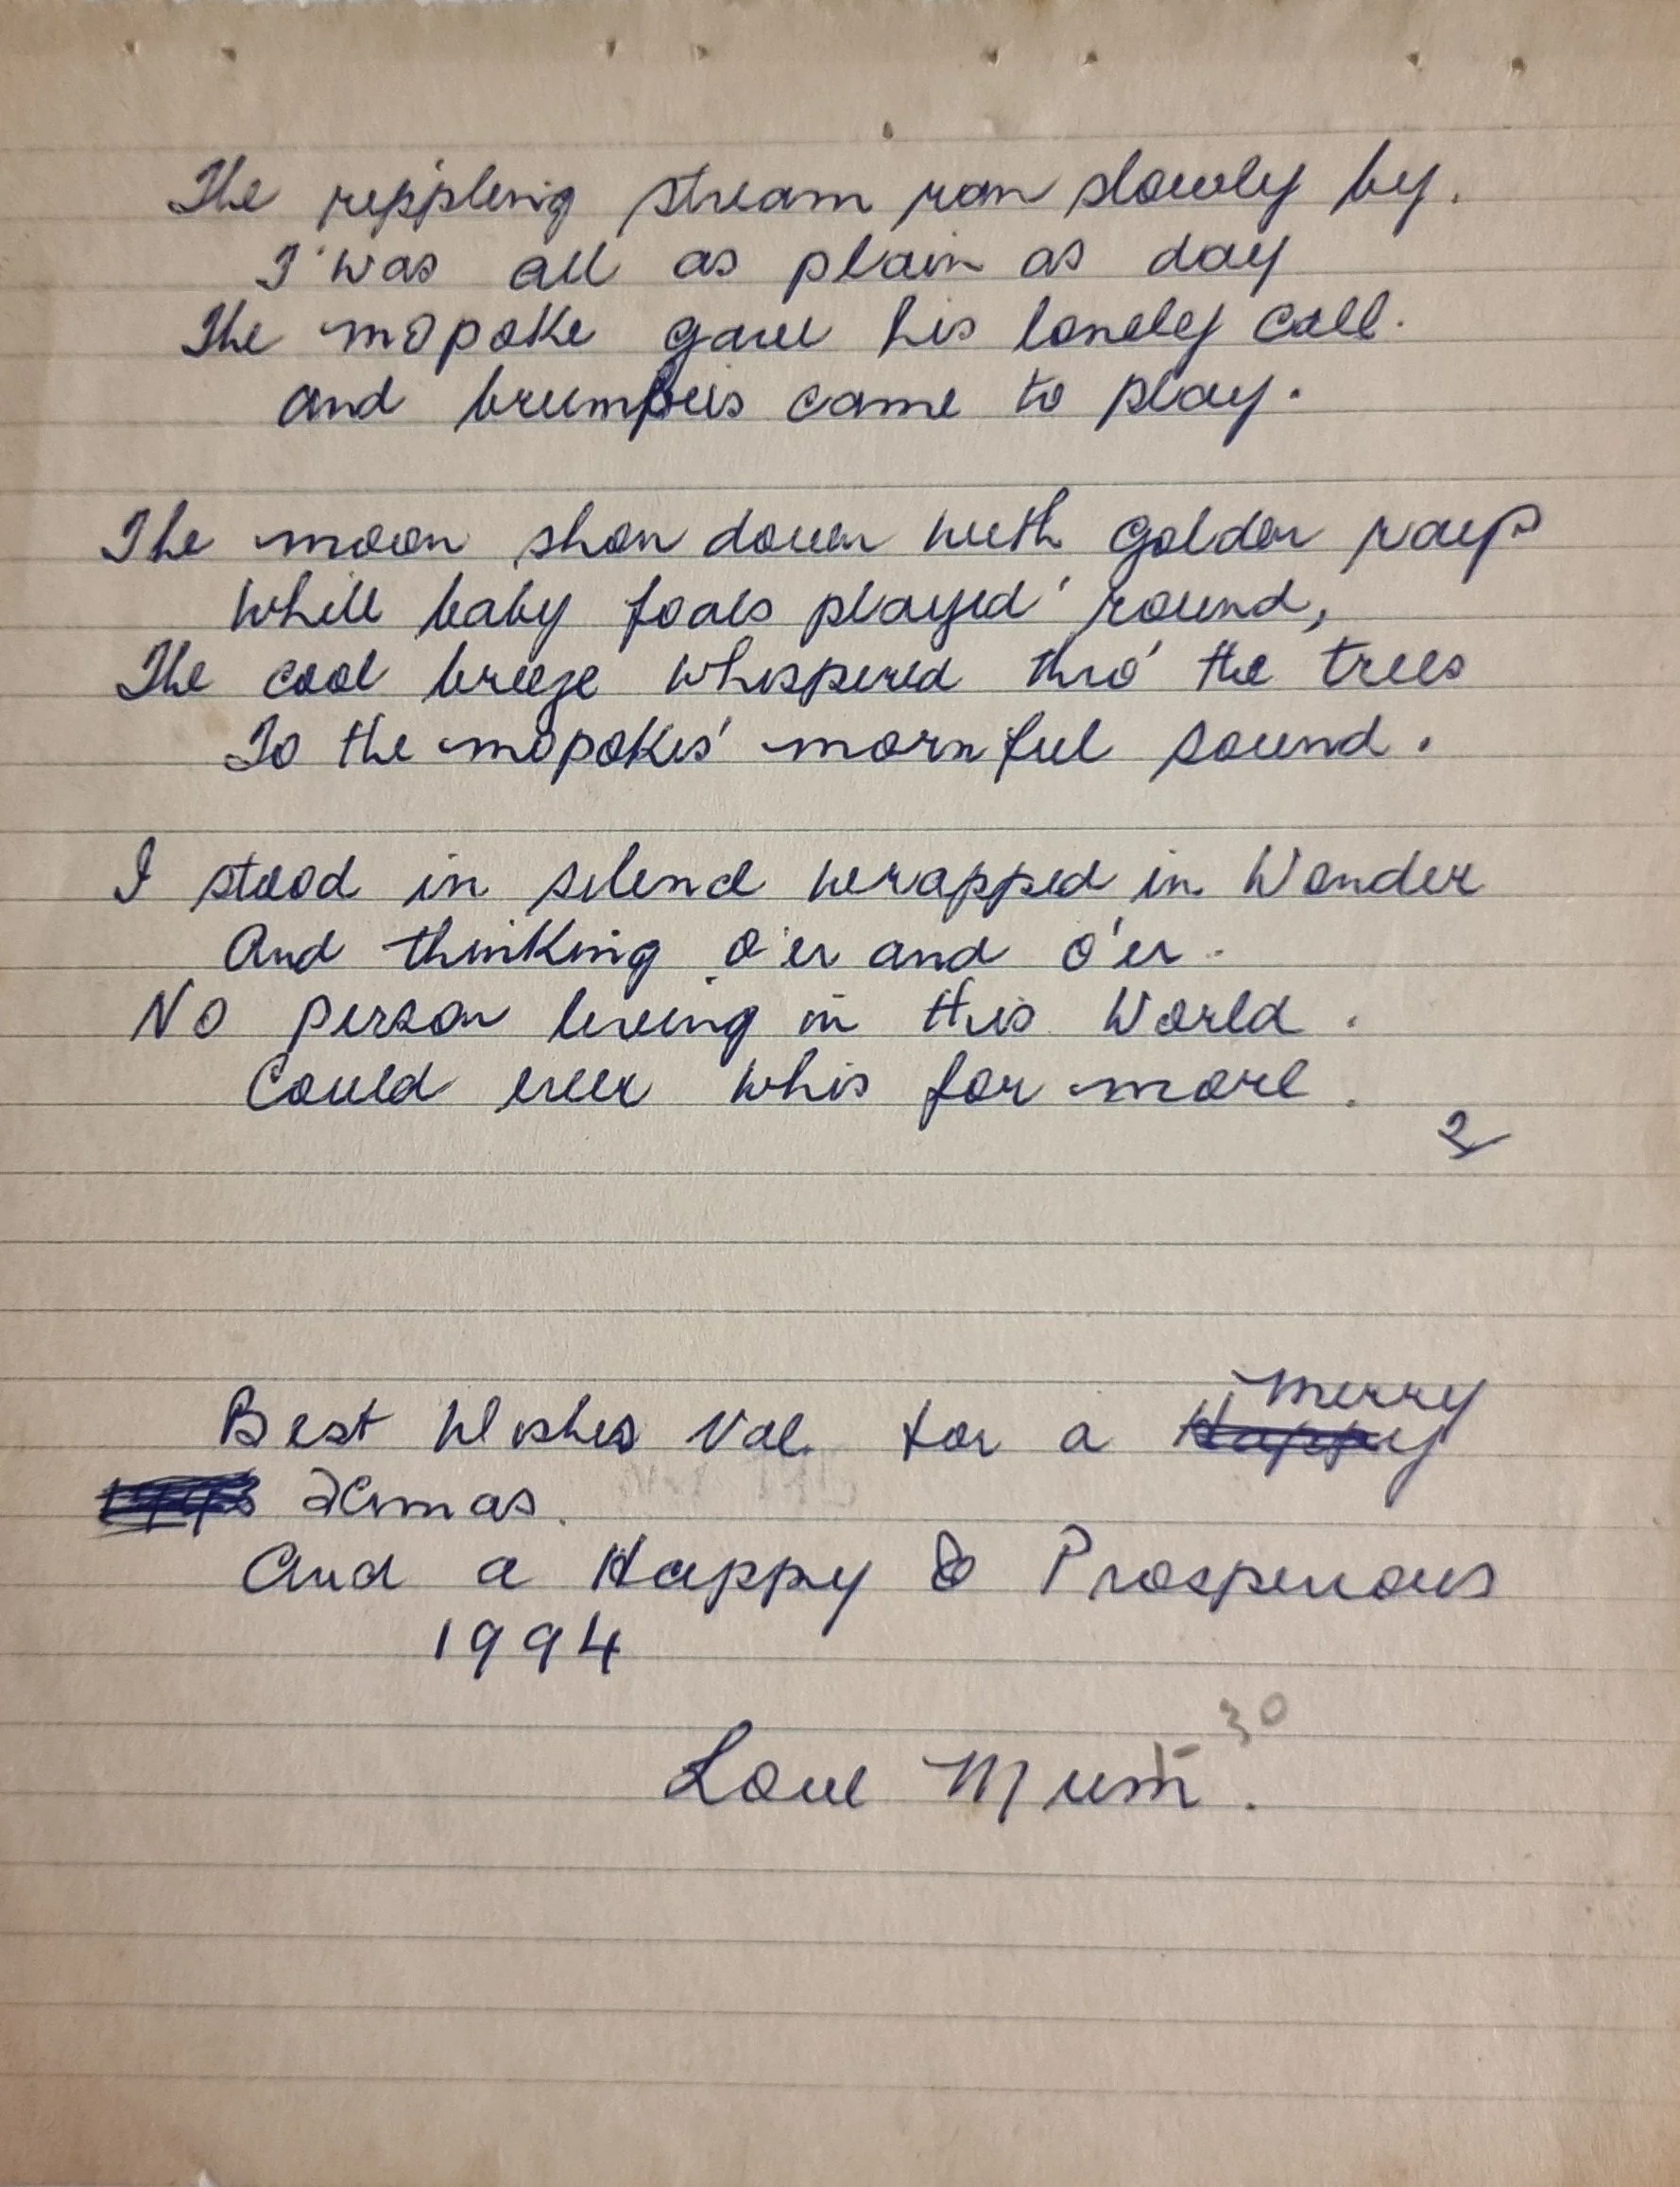 The rippling stream ran slowly by.
T'was all as plain as day
The mopoke gave his lonely call.
and brumbies came to play.
The moon shon down with golden rays
While baby foals played 'round,
The cool breeze whispered thro' the trees
To the mopokes' mornful sound.
I stood in silence wrapped in Wonder
And thinking o'er and o'er.
No person living in this World.
Could ever whis for more.
2
Best Wishes Val. for a Happy merry
Xmas.
And a Happy & Prosperous
1994
30
Love Mum.